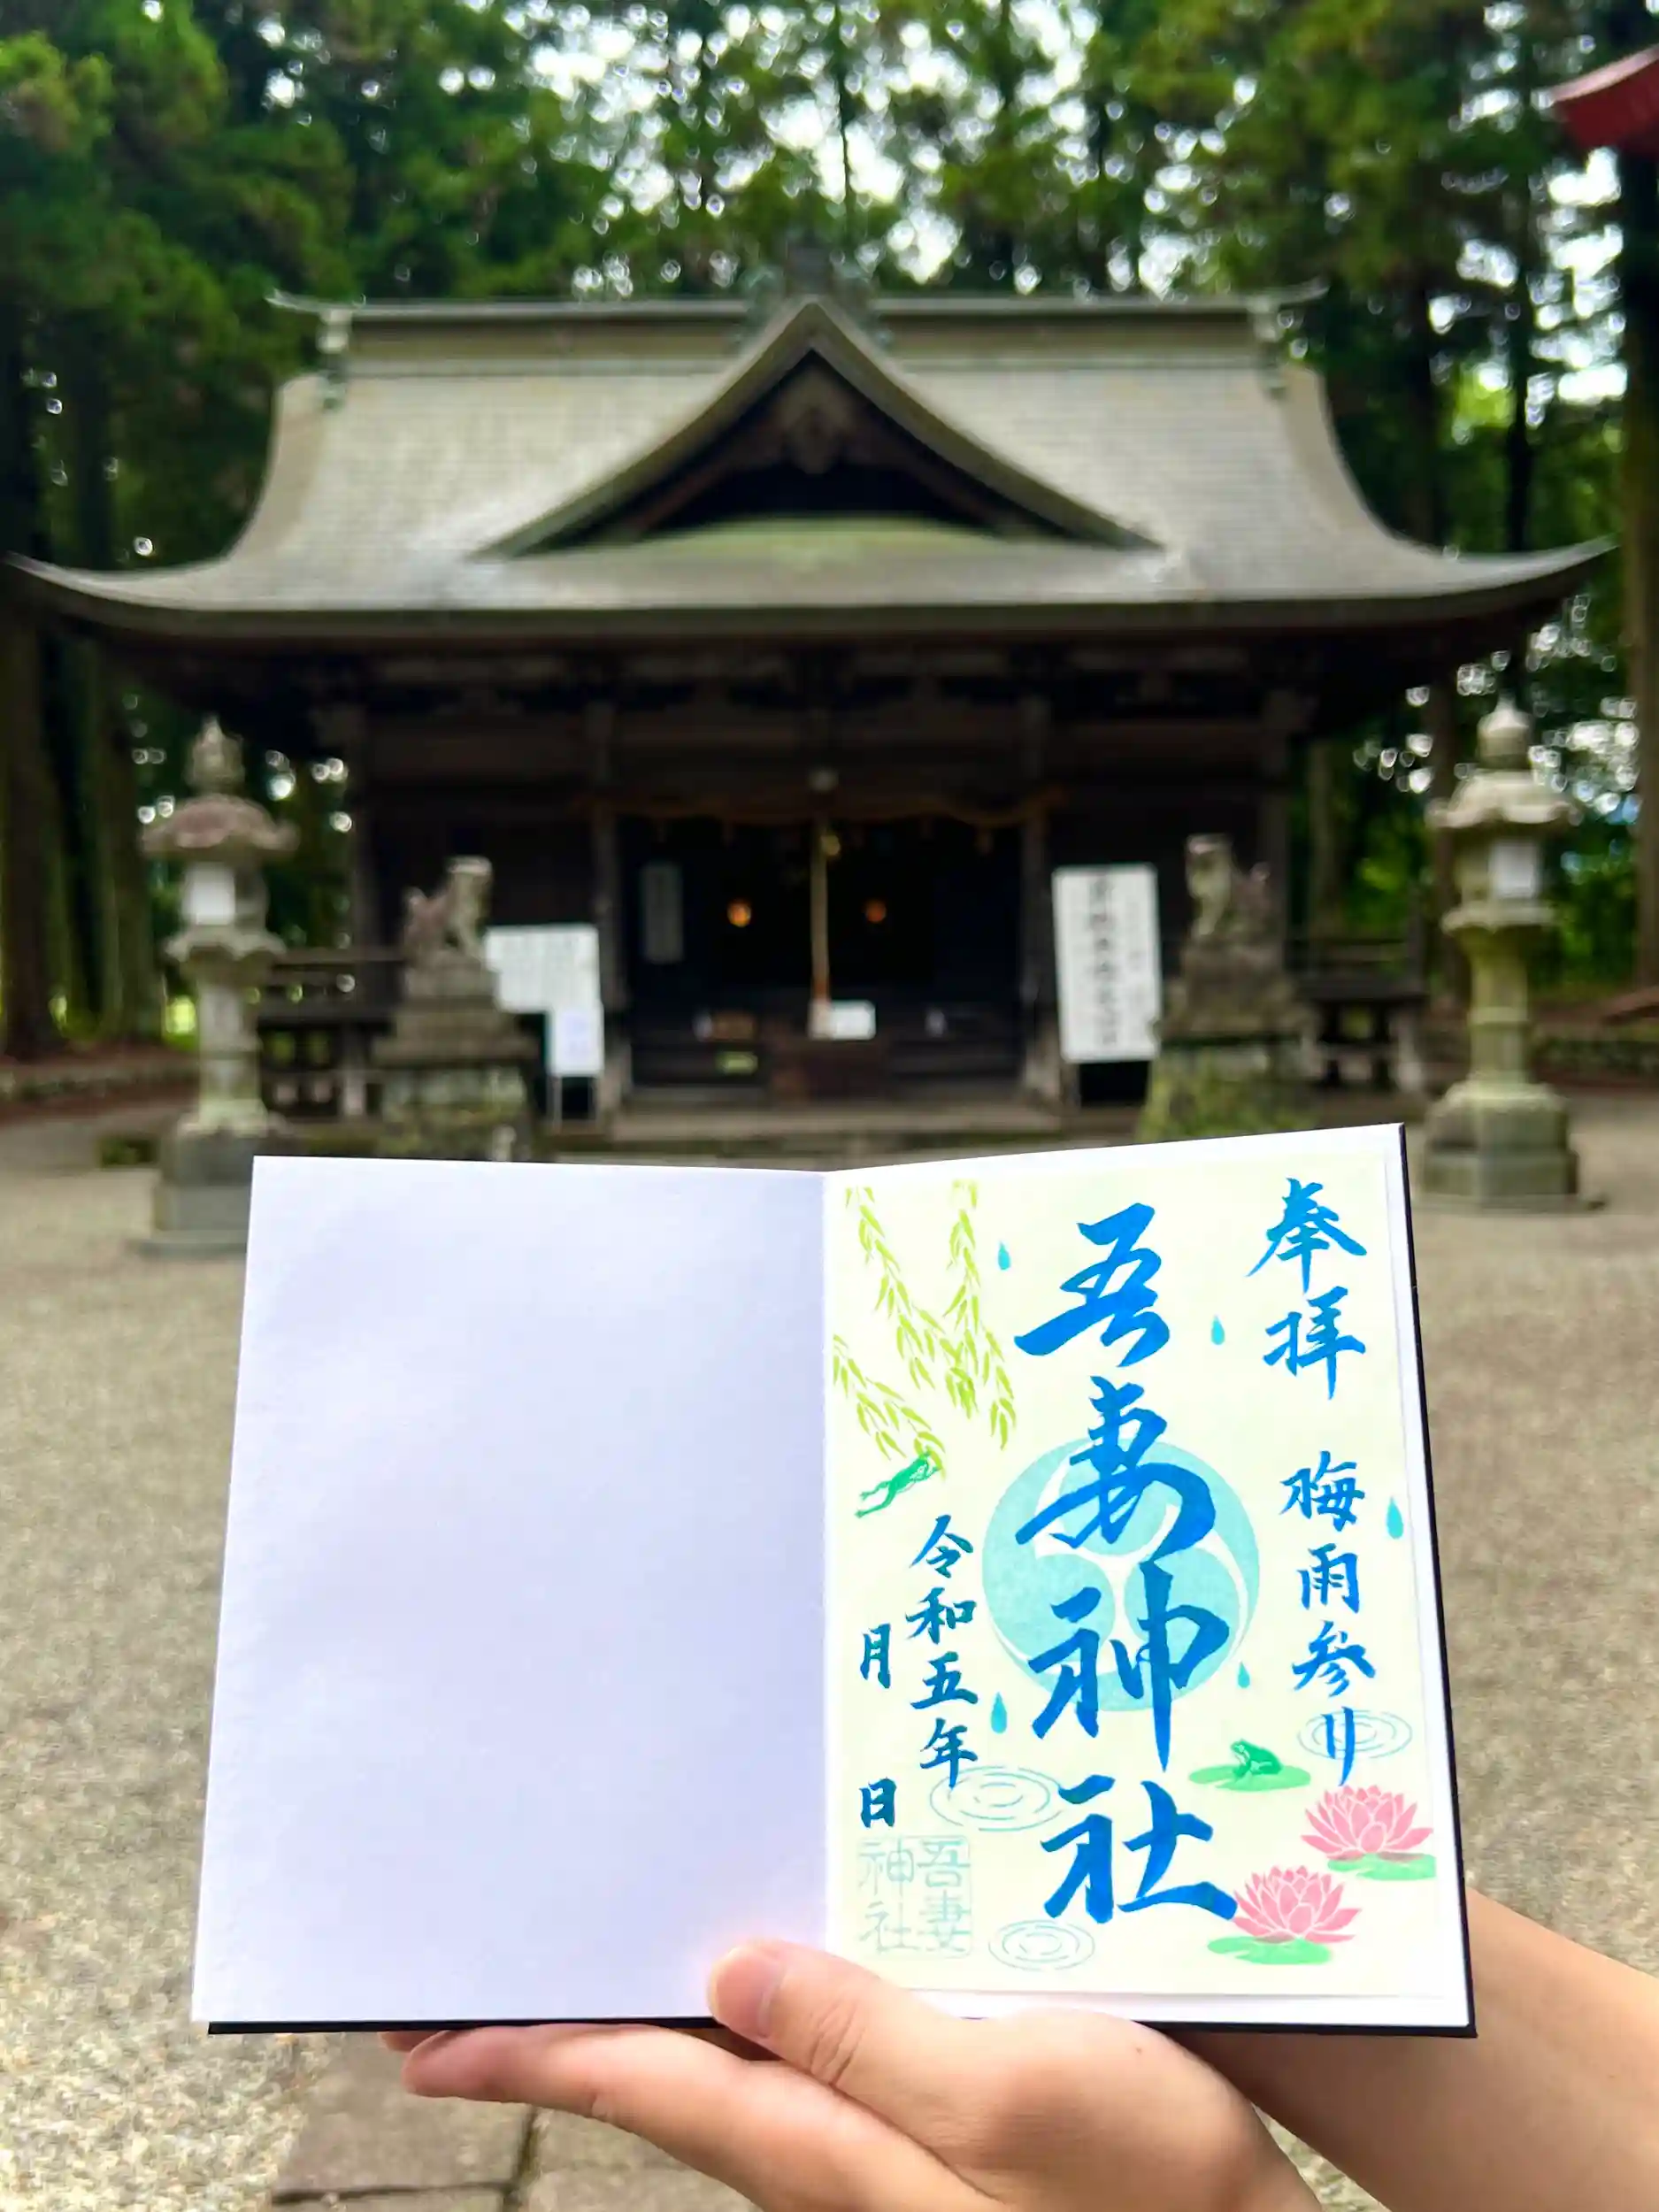 奉拝　梅雨参り
吾妻神社
令和五年
月　日
吾妻
神社